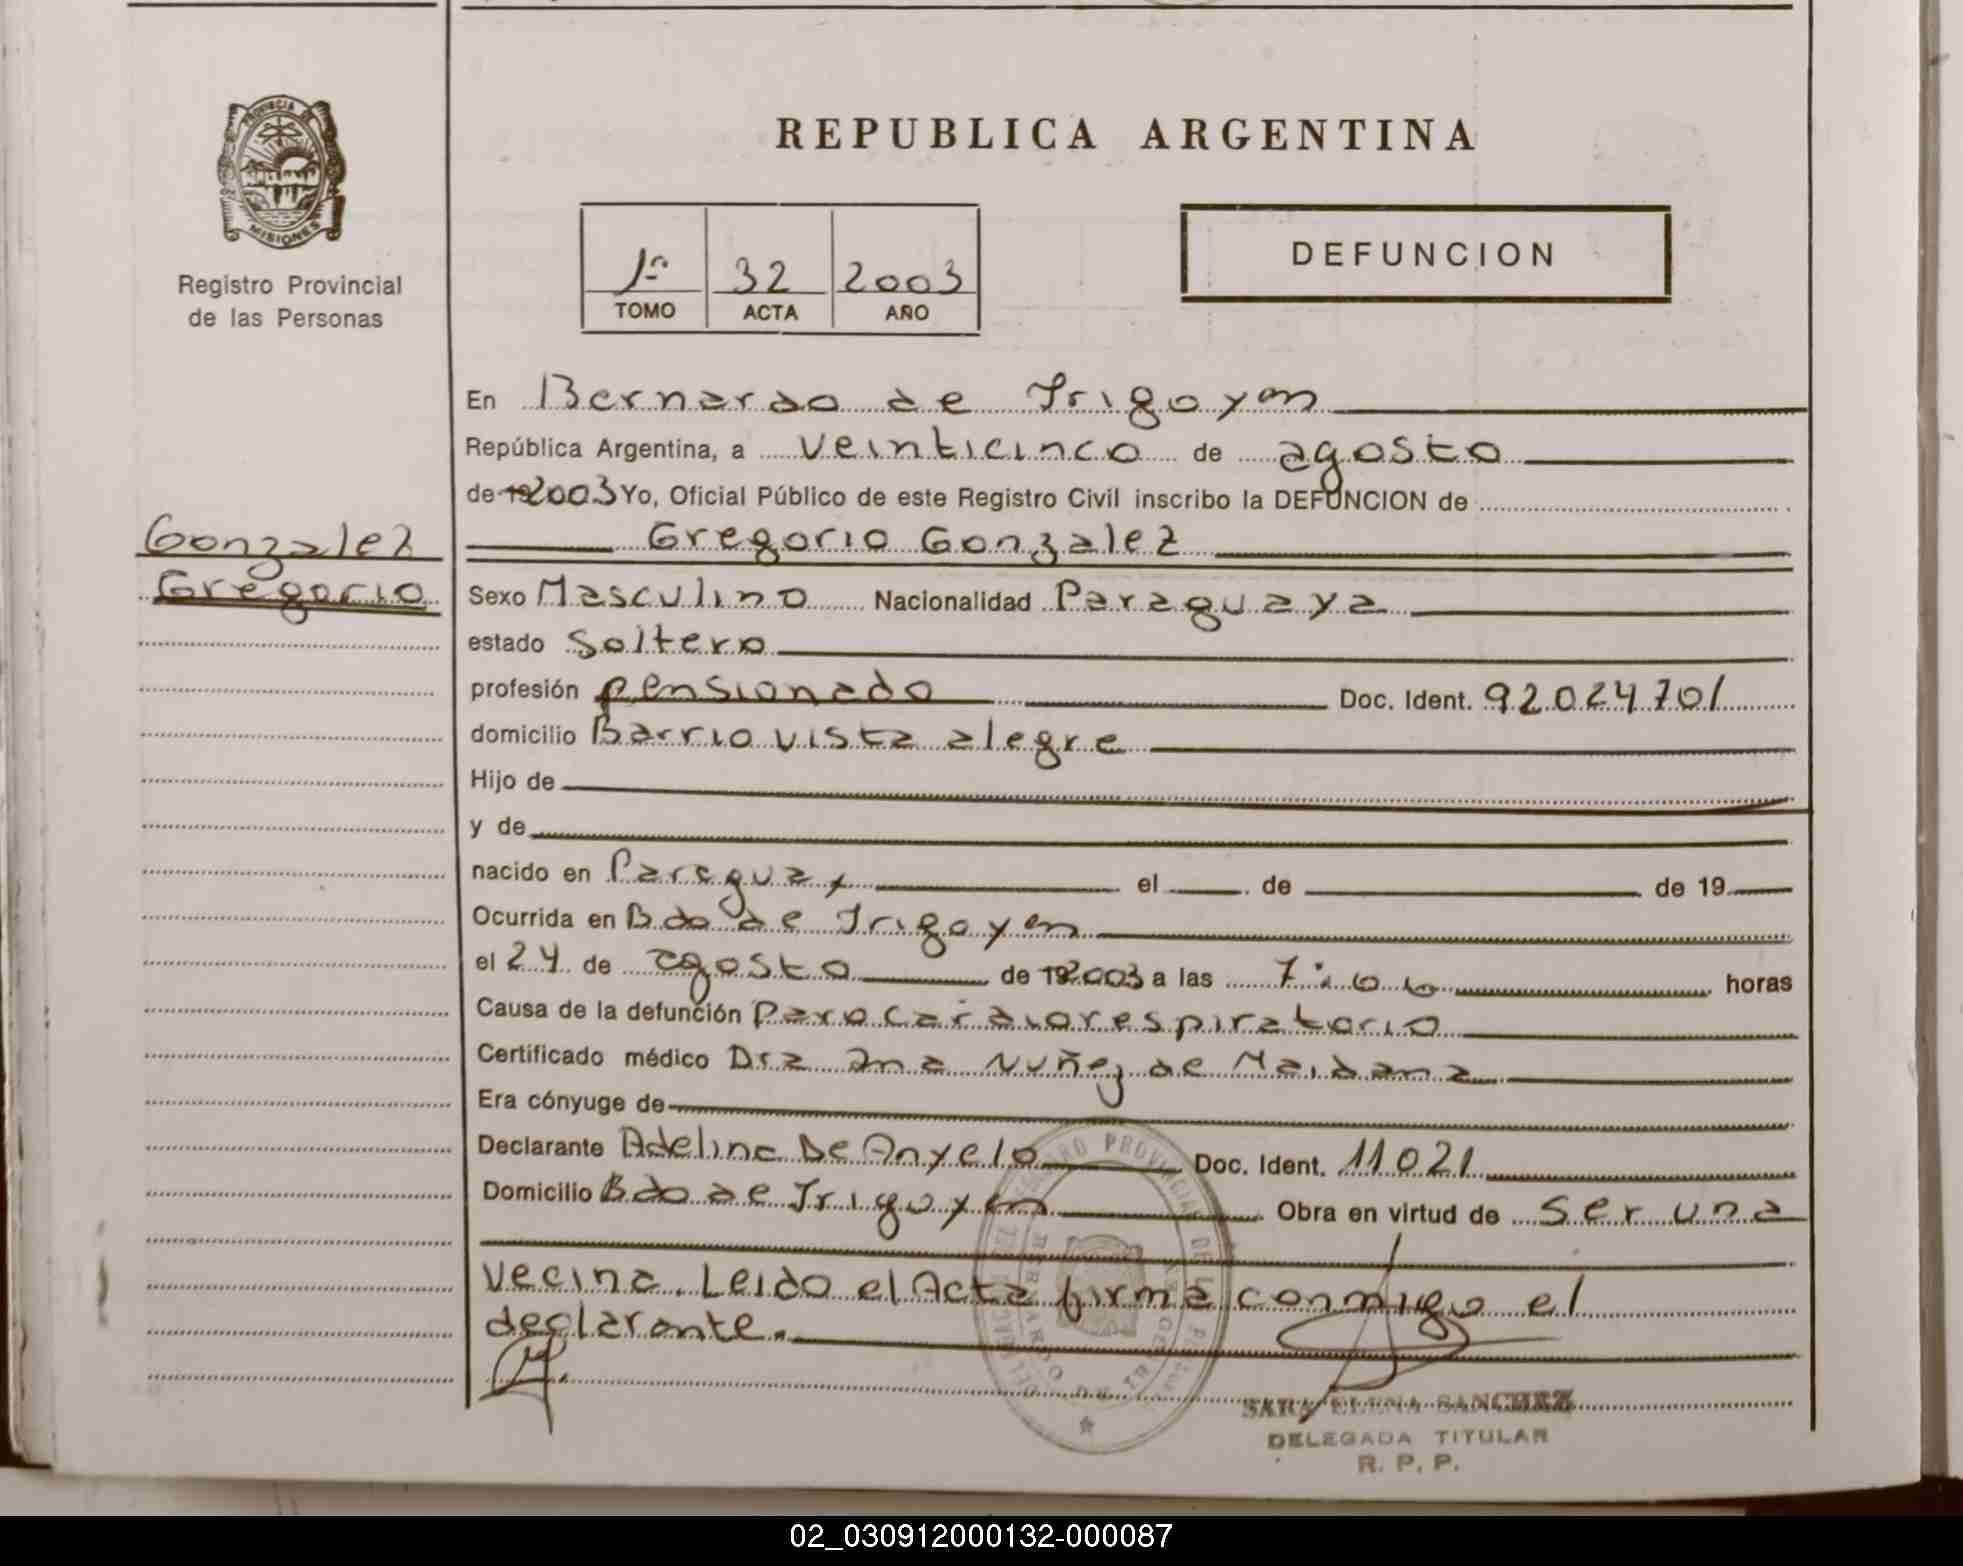 PROVINCIA DE
MISIONES
Registro Provincial
de las Personas
REPUBLICA ARGENTINA
1º 32 2003
TOMO ACTA AÑO
DEFUNCION
En Bernardo de Irigoyen
República Argentina, a veinticinco de agosto
de 19 2003 Yo, Oficial Público de este Registro Civil inscribo la DEFUNCION de
Gregorio Gonzalez
Gonzalez
Gregorio
Sexo Masculino Nacionalidad Paraguaya
estado Soltero
profesión pensionado Doc. Ident. 92024701
domicilio Barrio vista alegre
Hijo de
y de
nacido en Paraguay el de de 19
Ocurrida en Bdo de Irigoyen
el 24 de agosto de 19 2003 a las 7:00 horas
Causa de la defunción Paro cardiorespiratorio
Certificado médico Dra Ana Nuñez de Maidana
Era cónyuge de
Declarante Adelina De Anyelo Doc. Ident. 11021
Domicilio Bdo de Irigoyen Obra en virtud de ser una
vecina. Leido el Acta firma conmigo el
declarante.
SARA ELENA SANCHEZ
DELEGADA TITULAR
R. P. P.
02_030912000132-000087